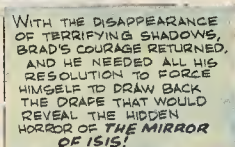 WITH THE DISAPPEARANCE
OF TERRIFYING SHADOWS,
BRAD'S COURAGE RETURNED,
AND HE NEEDED ALL HIS
RESOLUTION TO FORCE
HIMSELF TO DRAW BACK
THE DRAPE THAT WOULD
REVEAL THE HIDDEN
HORROR OF THE MIRROR
OF ISIS!